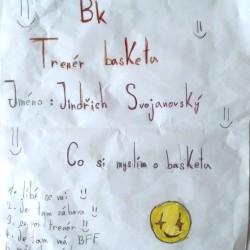 Bk
Trenér basketu
Jméno : Jindřich Svojanovský
Co si myslím o basketu
1. líbí se mi
2. Je tam zábava
3. trenér
4. Je tam má BFF